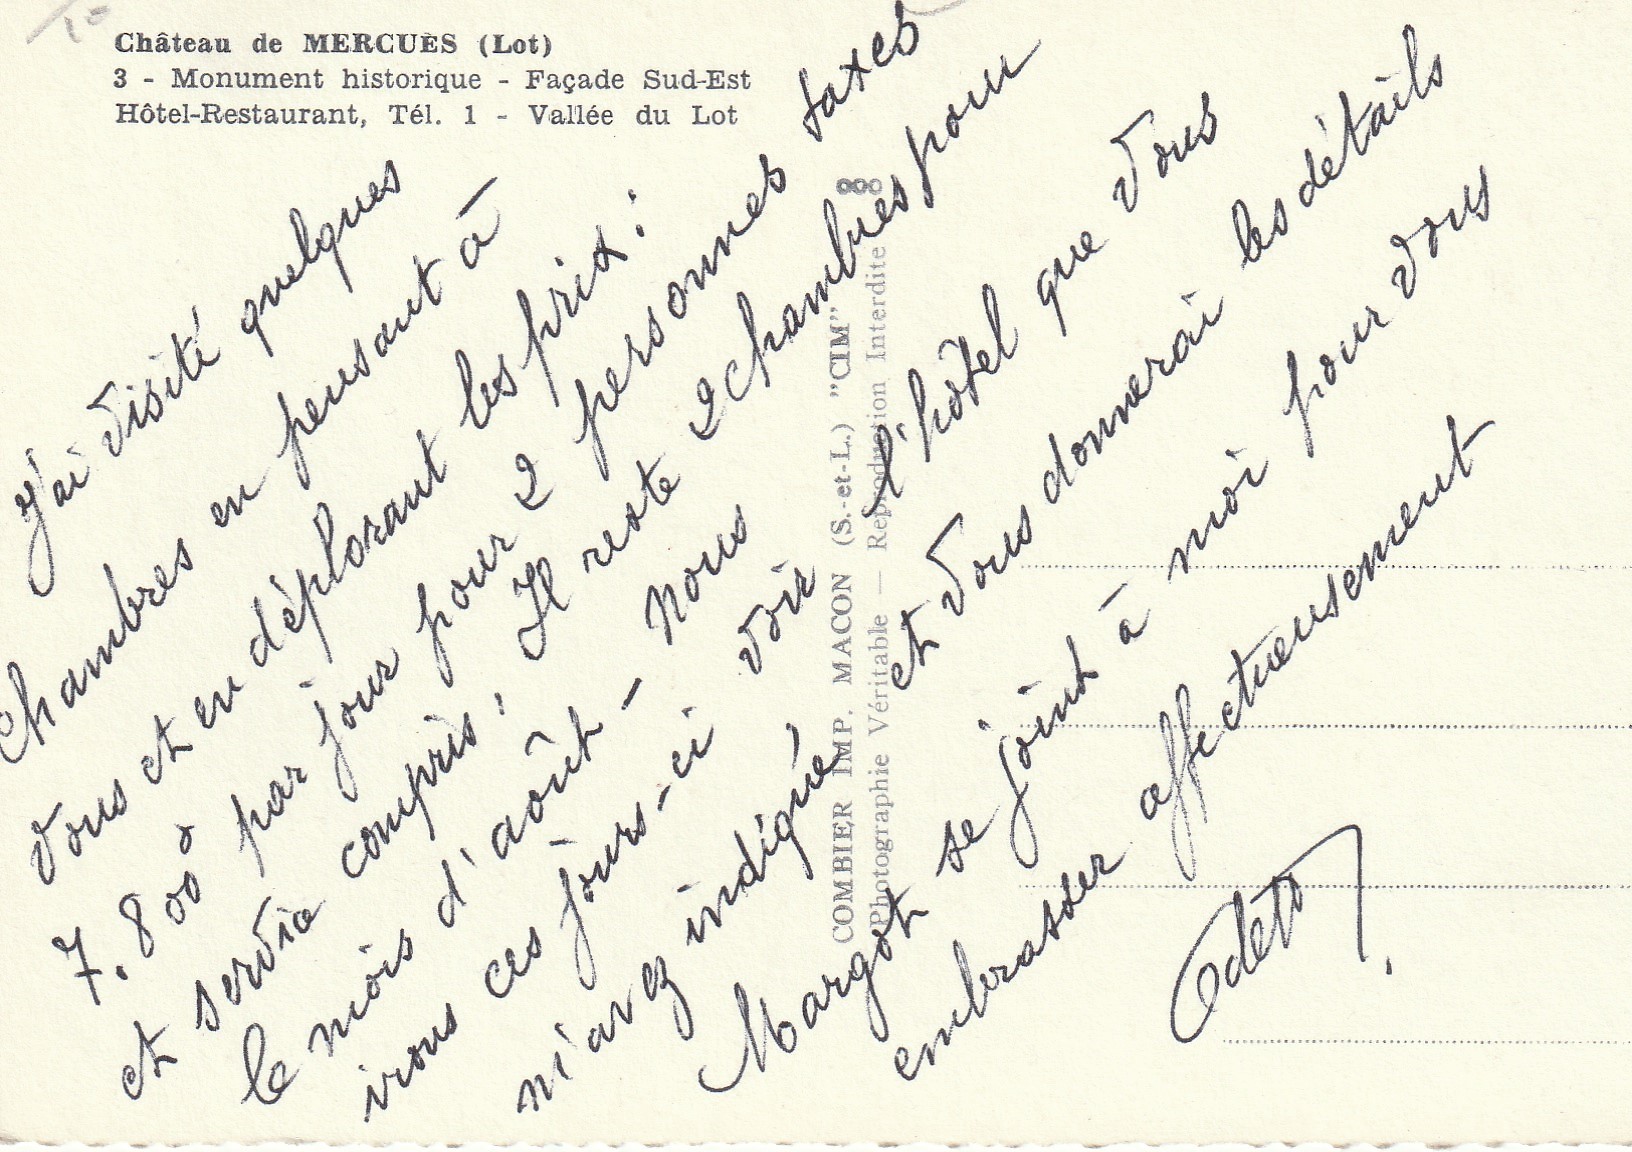 Château de MERCUÈS (Lot)
3 - Monument historique - Façade Sud-Est
Hôtel-Restaurant, Tél. 1 - Vallée du Lot
J'ai visité quelques
chambres en pensant à
vous et en déplorant les prix :
7.800 par jour pour 2 personnes taxes
et service compris. Il reste 2 chambres pour
le mois d'août - Nous
irons ces jours-ci voir l'hôtel que vous
m'avez indiqué et vous donnerai les détails
Margot se joint à moi pour vous
embrasser affectueusement
Odette
COMBIER IMP. MACON (S.-et-L.) "CIM"
Photographie Véritable — Reproduction Interdite